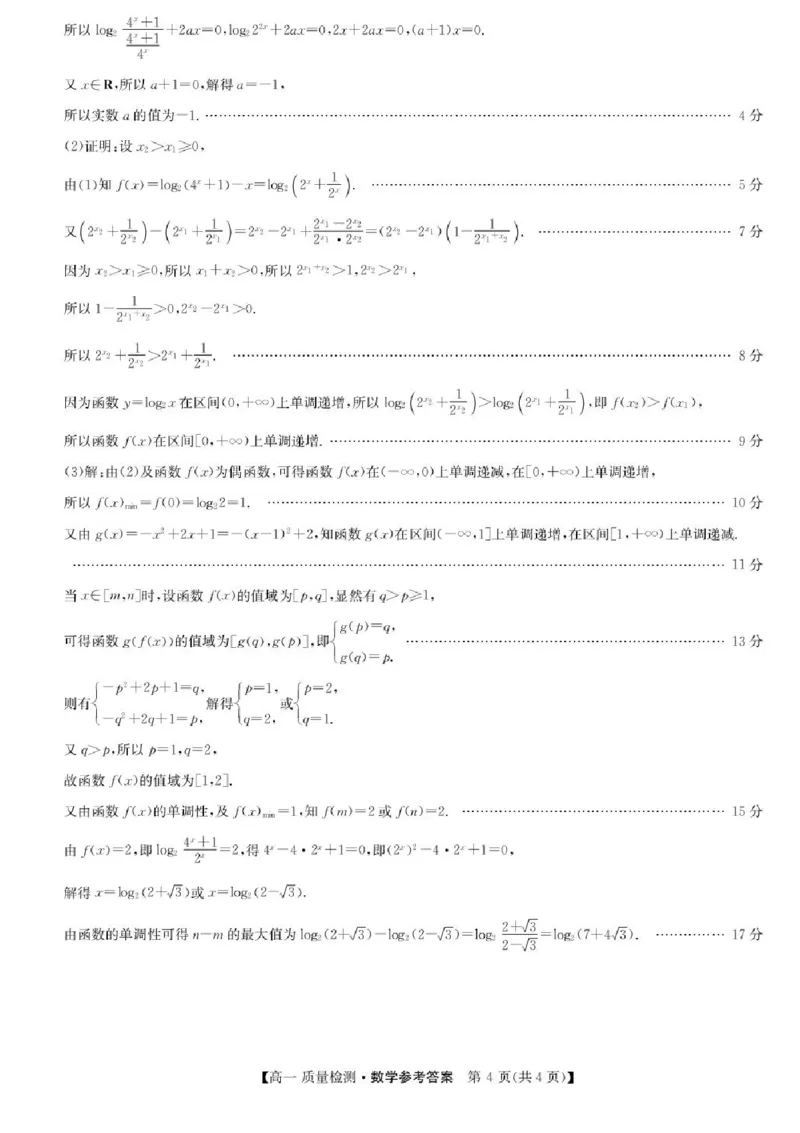 所以 log₂ \frac{4ˣ+1}{\frac{4ˣ+1}{4ˣ}}+2ax=0,log₂2²ˣ+2ax=0,2x+2ax=0,(a+1)x=0.
又 x∈R,所以 a+1=0,解得 a=-1,
所以实数 a 的值为-1. …… 4 分
(2)证明:设 x₂>x₁≥0,
由(1)知 f(x)=log₂(4ˣ+1)-x=log₂(2ˣ+\frac{1}{2ˣ}). …… 5 分
又(2^{x₂}+\frac{1}{2^{x₂}})-(2^{x₁}+\frac{1}{2^{x₁}})=2^{x₂}-2^{x₁}+\frac{2^{x₁}-2^{x₂}}{2^{x₁}·2^{x₂}}=(2^{x₂}-2^{x₁})(1-\frac{1}{2^{x₁+x₂}}). …… 7 分
因为 x₂>x₁≥0,所以 x₁+x₂>0,所以 2^{x₁+x₂}>1,2^{x₂}>2^{x₁},
所以 1-\frac{1}{2^{x₁+x₂}}>0,2^{x₂}-2^{x₁}>0.
所以 2^{x₂}+\frac{1}{2^{x₂}}>2^{x₁}+\frac{1}{2^{x₁}}. …… 8 分
因为函数 y=log₂x 在区间(0,+∞)上单调递增,所以 log₂(2^{x₂}+\frac{1}{2^{x₂}})>log₂(2^{x₁}+\frac{1}{2^{x₁}}),即 f(x₂)>f(x₁),
所以函数 f(x)在区间[0,+∞)上单调递增. …… 9 分
(3)解:由(2)及函数 f(x)为偶函数,可得函数 f(x)在(-∞,0)上单调递减,在[0,+∞)上单调递增,
所以 f(x)_{min}=f(0)=log₂2=1. …… 10 分
又由 g(x)=-x²+2x+1=-(x-1)²+2,知函数 g(x)在区间(-∞,1]上单调递增,在区间[1,+∞)上单调递减.
…… 11 分
当 x∈[m,n]时,设函数 f(x)的值域为[p,q],显然有 q>p≥1,
可得函数 g(f(x))的值域为[g(q),g(p)],即{g(p)=q, g(q)=p. …… 13 分
则有{-p²+2p+1=q, -q²+2q+1=p, 解得{p=1, q=2, 或{p=2, q=1.
又 q>p,所以 p=1,q=2,
故函数 f(x)的值域为[1,2].
又由函数 f(x)的单调性,及 f(x)_{min}=1,知 f(m)=2 或 f(n)=2. …… 15 分
由 f(x)=2,即 log₂ \frac{4ˣ+1}{2ˣ}=2,得 4ˣ-4·2ˣ+1=0,即(2ˣ)²-4·2ˣ+1=0,
解得 x=log₂(2+√3)或 x=log₂(2-√3).
由函数的单调性可得 n-m 的最大值为 log₂(2+√3)-log₂(2-√3)=log₂ \frac{2+√3}{2-√3}=log₂(7+4√3). …… 17 分
【高一 质量检测·数学参考答案 第 4 页(共 4 页)】